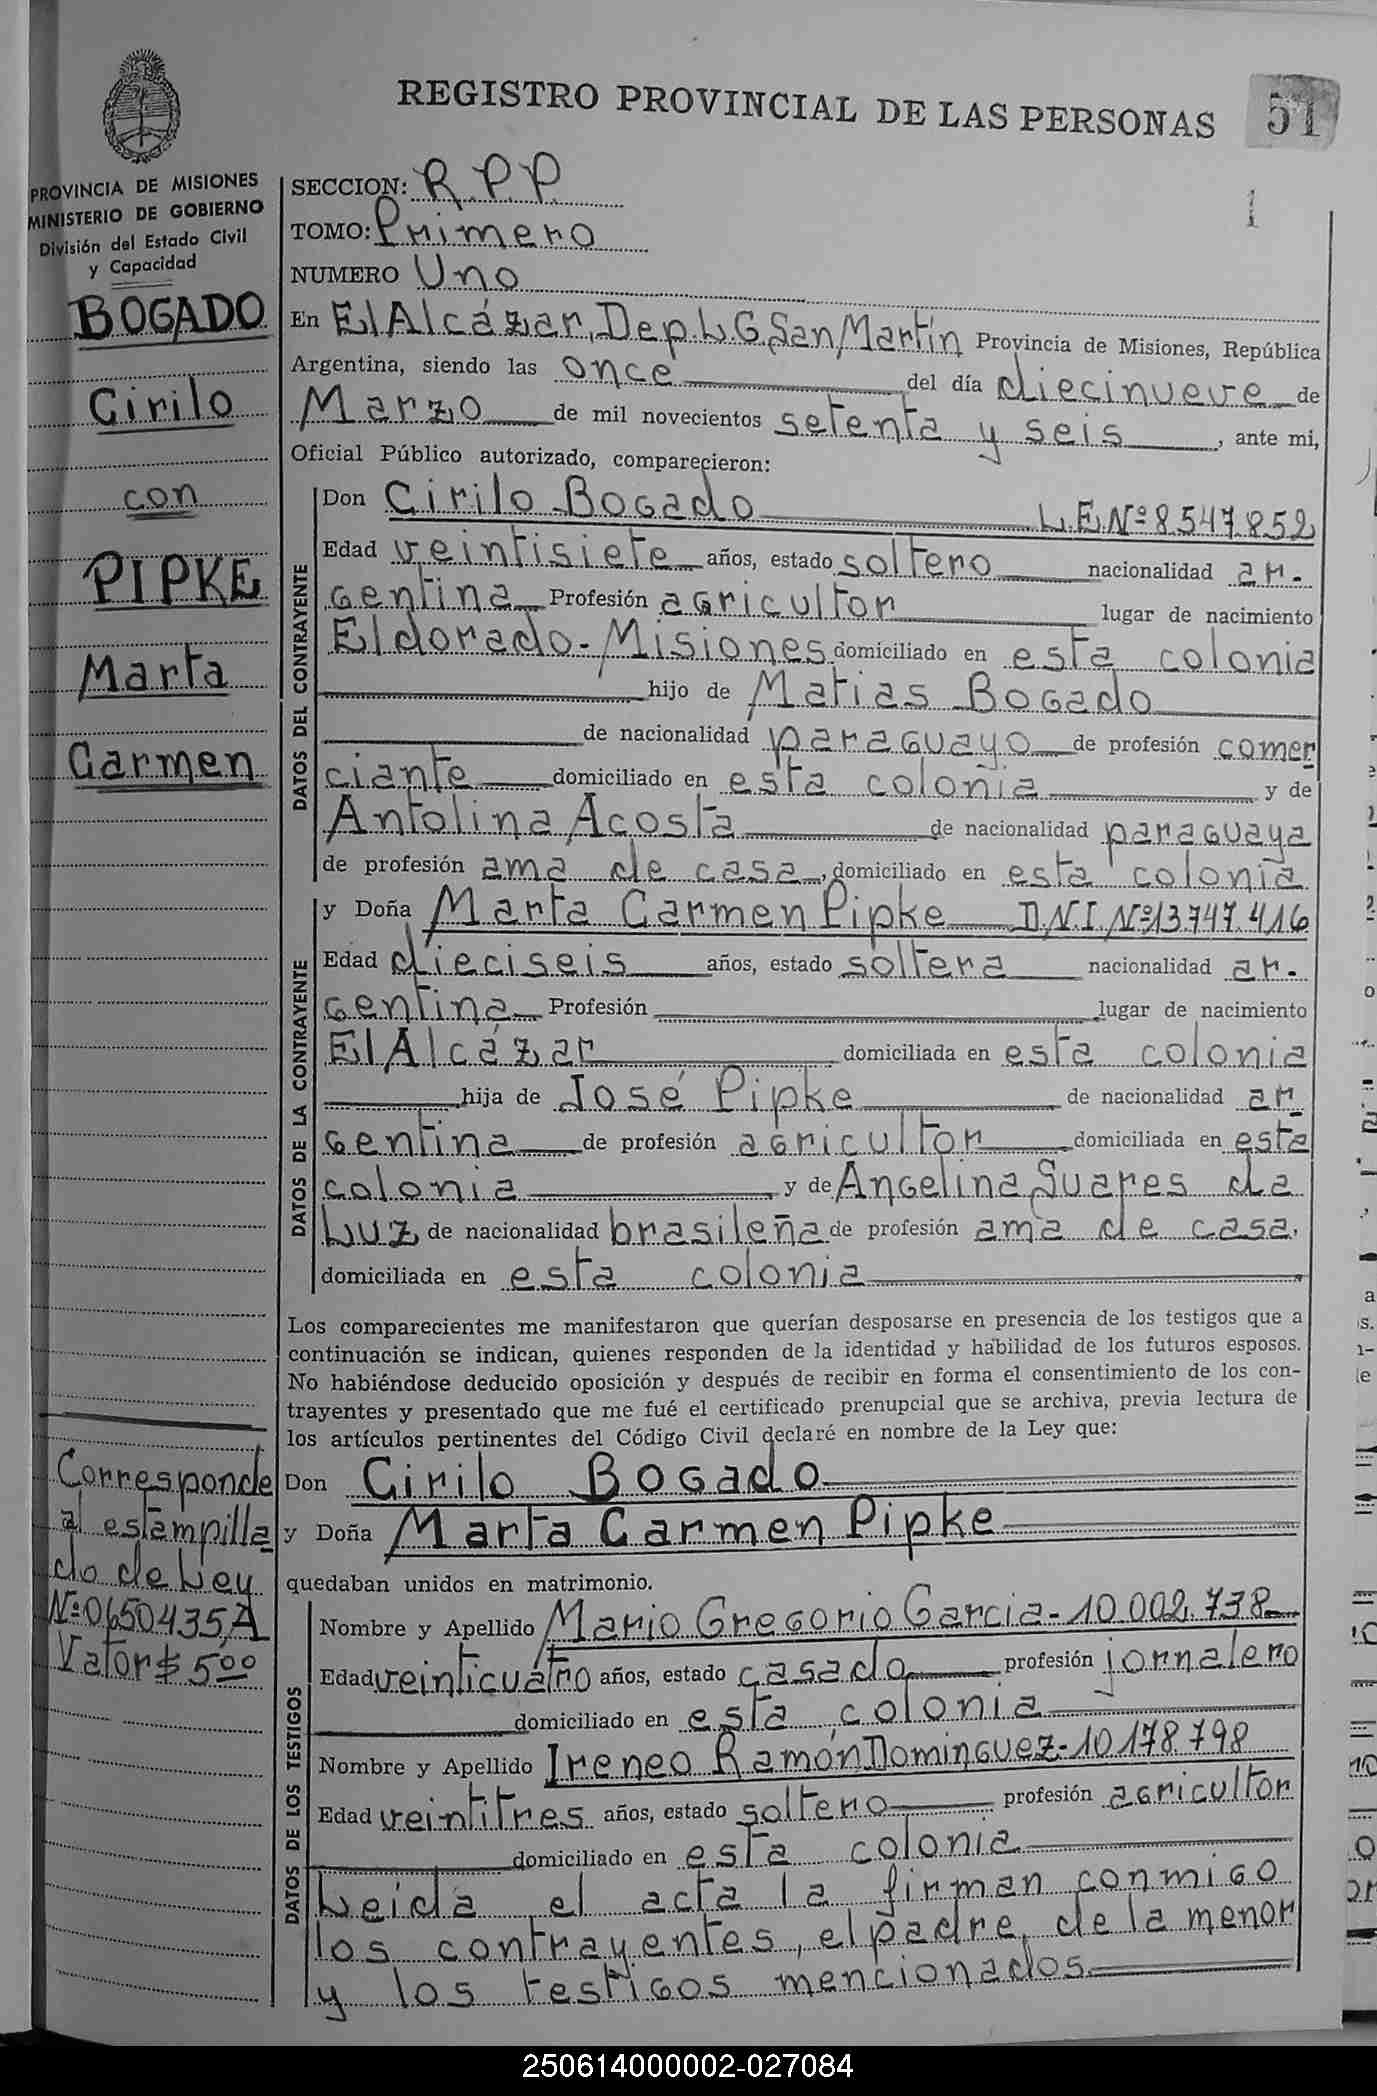 REGISTRO PROVINCIAL DE LAS PERSONAS
51
PROVINCIA DE MISIONES
MINISTERIO DE GOBIERNO
División del Estado Civil
y Capacidad
BOGADO
Cirilo
con
PIPKE
Marta
Carmen
Corresponde
al estampilla
do de Ley
Nº0650435,A
Valor $ 5,00
1
SECCION: R.P.P.
TOMO: Primero
NUMERO Uno
En El Alcázar, Dep. L.G. San Martín Provincia de Misiones, República
Argentina, siendo las once del día diecinueve de
Marzo de mil novecientos setenta y seis, ante mi,
Oficial Público autorizado, comparecieron:
DATOS DEL CONTRAYENTE
Don Cirilo Bogado L.E.Nº 8.547.852
Edad veintisiete años, estado soltero nacionalidad ar-
gentina Profesión agricultor lugar de nacimiento
Eldorado-Misiones domiciliado en esta colonia
hijo de Matias Bogado
de nacionalidad paraguayo de profesión comer
ciante domiciliado en esta colonia y de
Antolina Acosta de nacionalidad paraguaya
de profesión ama de casa, domiciliado en esta colonia
DATOS DE LA CONTRAYENTE
y Doña Marta Carmen Pipke D.N.I. Nº13.747.416
Edad dieciseis años, estado soltera nacionalidad ar-
gentina Profesión lugar de nacimiento
El Alcázar domiciliada en esta colonia
hija de José Pipke de nacionalidad ar
gentina de profesión agricultor domiciliada en esta
colonia y de Angelina Suares da
Luz de nacionalidad brasileña de profesión ama de casa,
domiciliada en esta colonia
Los comparecientes me manifestaron que querían desposarse en presencia de los testigos que a
continuación se indican, quienes responden de la identidad y habilidad de los futuros esposos.
No habiéndose deducido oposición y después de recibir en forma el consentimiento de los con-
trayentes y presentado que me fué el certificado prenupcial que se archiva, previa lectura de
los artículos pertinentes del Código Civil declaré en nombre de la Ley que:
Don Cirilo Bogado
y Doña Marta Carmen Pipke
quedaban unidos en matrimonio.
DATOS DE LOS TESTIGOS
Nombre y Apellido Mario Gregorio Garcia-10.002.738
Edad veinticuatro años, estado casado profesión jornalero
domiciliado en esta colonia
Nombre y Apellido Ireneo Ramón Dominguez-10.178.798
Edad veintitres años, estado soltero profesión agricultor
domiciliado en esta colonia
Leida el acta la firman conmigo
los contrayentes, el padre de la menor
y los testigos mencionados
250614000002-027084